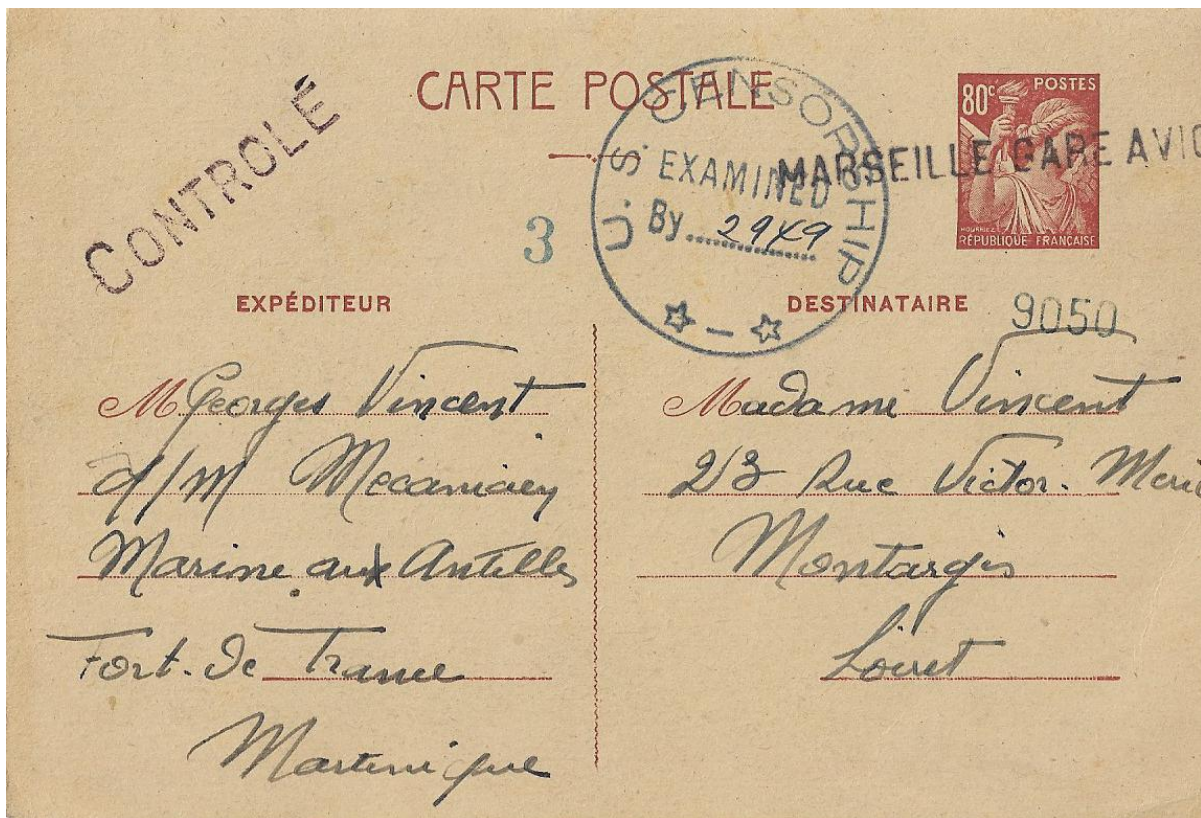 CARTE POSTALE
CONTROLÉ
U. S. CENSORSHIP
EXAMINED
By 2949
3
MARSEILLE GARE AVIO
80c POSTES
RÉPUBLIQUE FRANÇAISE
9050
EXPÉDITEUR
M Georges Vincent
Marine aux Antilles
Fort-De France
Martinique
DESTINATAIRE
Madame Vincent
23 Rue Victor
Montargis
Loiret